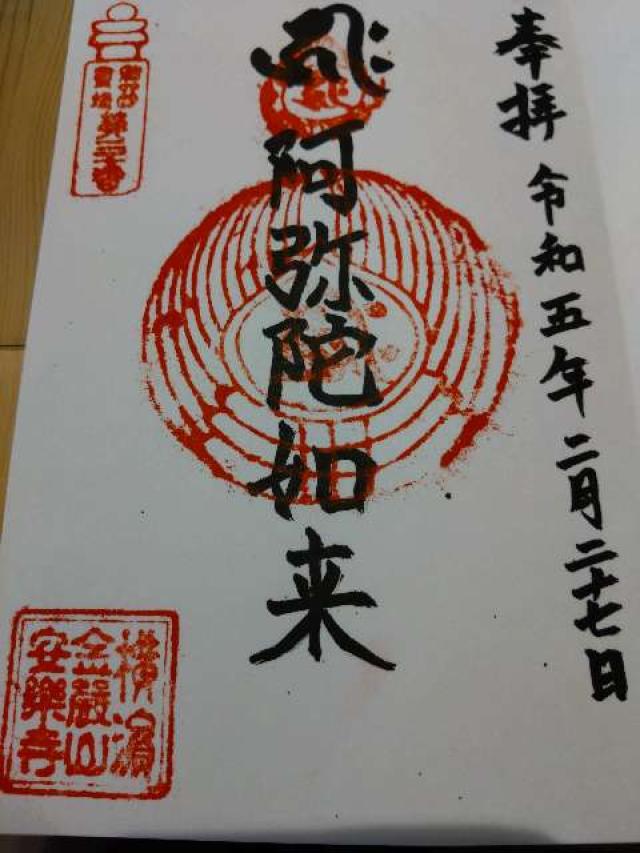 奉拝 令和五年二月二十七日
阿弥陀如来
横濱
金嚴山
安樂寺